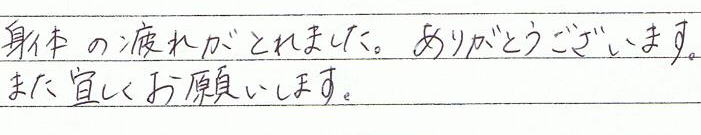 身体の疲れがとれました。ありがとうございます。
また宜しくお願いします。